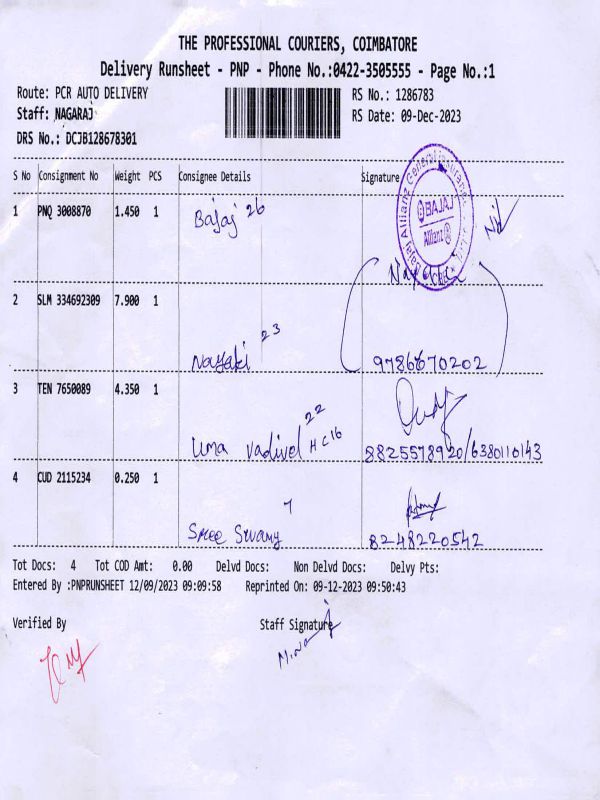 THE PROFESSIONAL COURIERS, COIMBATORE
Delivery Runsheet - PNP - Phone No.:0422-3505555 - Page No.:1
Route: PCR AUTO DELIVERY RS No.: 1286783
Staff: NAGARAJ RS Date: 09-Dec-2023
DRS No.: DCJB128678301
S No Consignment No Weight PCS Consignee Details Signature
1 PNQ 3008870 1.450 1 Bajaj 26
Bajaj Allianz General Insurance
BAJAJ
Allianz
2 SLM 334692309 7.900 1
Nayaki 23 9786670202
3 TEN 7650089 4.350 1
Uma Vadivel 22 HC16 8825578920/6380110143
4 CUD 2115234 0.250 1
Sree Swamy 7 8248220542
Tot Docs: 4 Tot COD Amt: 0.00 Delvd Docs: Non Delvd Docs: Delvy Pts:
Entered By :PNPRUNSHEET 12/09/2023 09:09:58 Reprinted On: 09-12-2023 09:50:43
Verified By Staff Signature